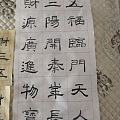 五福臨門天人
三陽開泰業長
財源廣進物寶